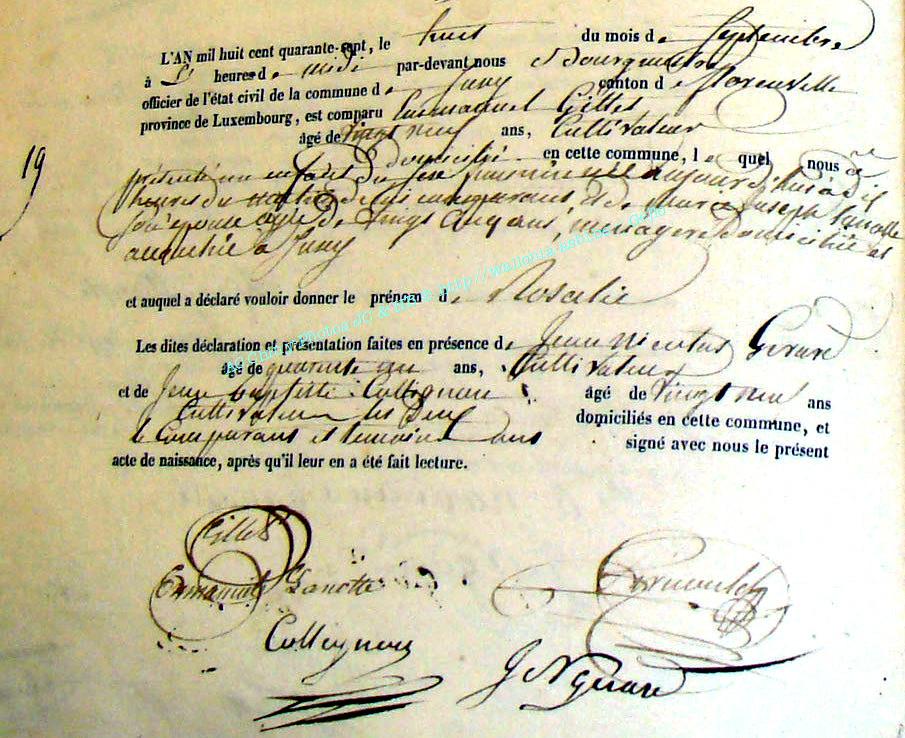 L'AN mil huit cent quarante-sept, le huit du mois de Septembre
à heures de midi par-devant nous Bourguemestre
officier de l'état civil de la commune de canton de florenville
province de Luxembourg, est comparu Emmanuel Gilles
âgé de vingt neuf ans, Cultivateur
19
domicilié en cette commune, lequel nous a
présenté un enfant du sexe feminin né aujourd'hui à dix
heures du matin de lui comparant et de Marie Joseph
son épouse agée de vingt ans, menagere domiciliée et
à
et auquel a déclaré vouloir donner le prénom de Rosalie
Les dites déclaration et présentation faites en présence de Jean Nicolas Gerard
âgé de quarante un ans, Cultivateur
et de Jean baptiste Collignon âgé de vingt neuf ans
Cultivateur les deux domiciliés en cette commune, et
le Comparant et temoins ont signé avec nous le présent
acte de naissance, après qu'il leur en a été fait lecture.
Gilles
Emmanuel Lanotte
Collignon
J N Gerard